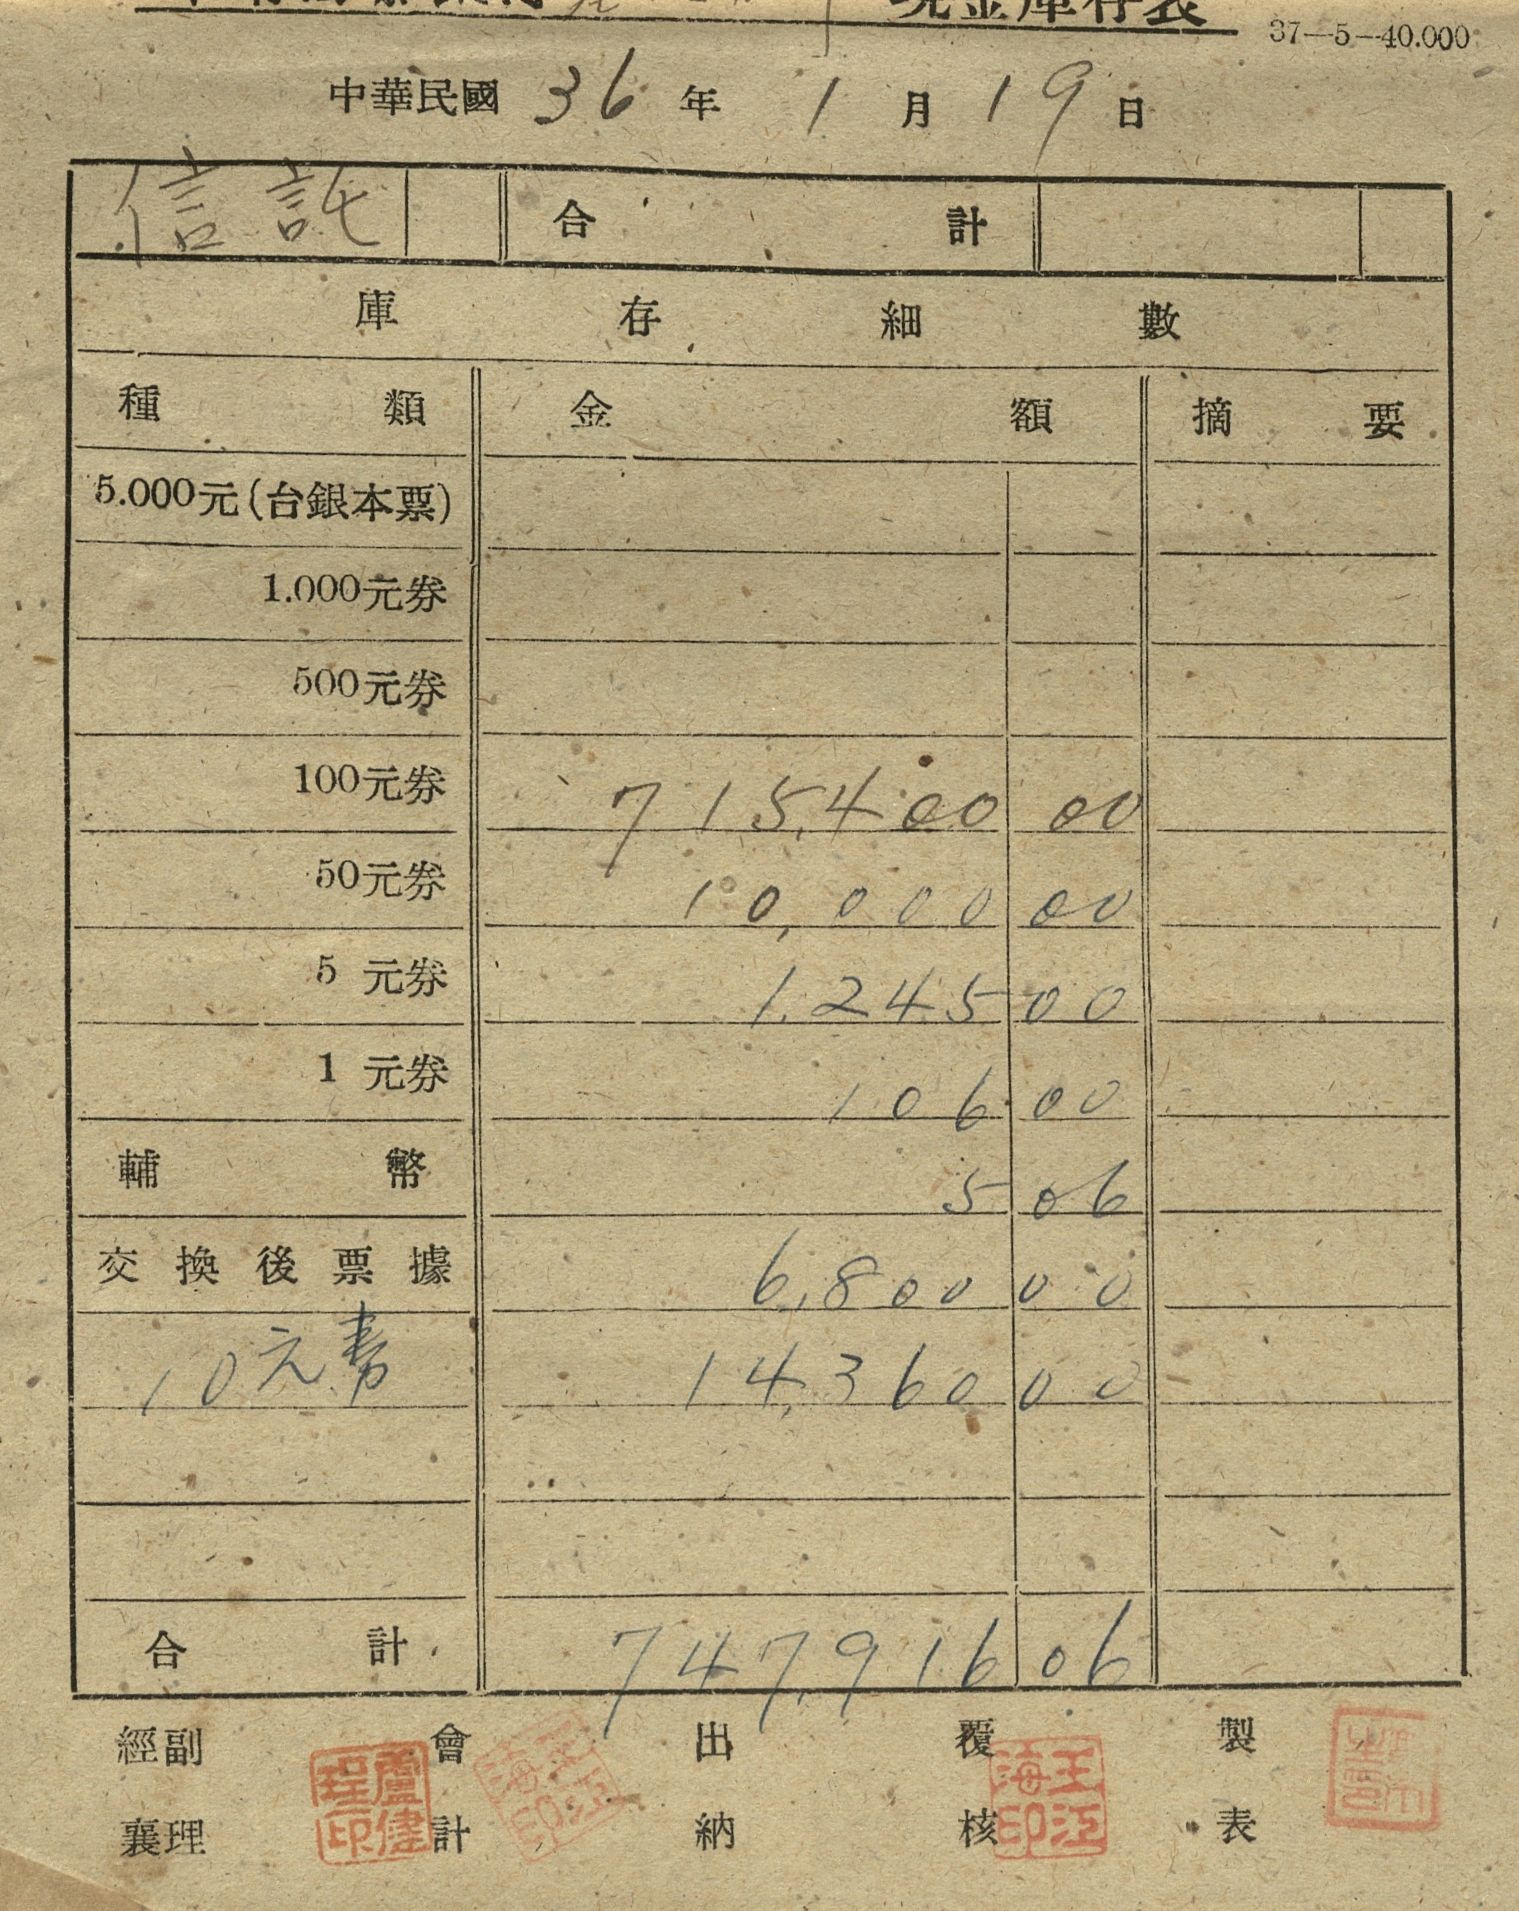 現金庫存表
37—5—40.000
中華民國 36 年 1 月 19 日
信託 合計
庫存細數
種類 金額 摘要
5.000元(台銀本票)
1.000元券
500元券
100元券 715,400 00
50元券 10,000 00
5 元券 1,245 00
1 元券 106 00
輔幣 5 06
交換後票據 6,800 00
10元券 14,360 00
合計 747,916 06
經副 會 出 覆 製
襄理 計 納 核 表
盧倢程印
王江海印
王江海印